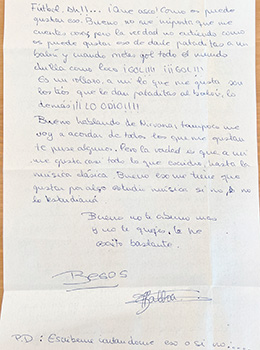 Fútbol, Ah!!... ¡Que asco! Como os puede
gustar eso. Bueno no me importa que me
cuentes cosas pero la verdad no entiendo como
os puede gustar eso de darle pataditas a un
balón y cuando metes gol todo el mundo
chilla como loco ¡GOL!!! ¡¡GOL!!!
Es un rollazo, a mi lo que me gusta son
los tíos que le dan pataditas al balón, lo
demás ¡¡¡LO ODIO!!!!
Bueno hablando de Nirvana, tampoco me
voy a acordar de todos los que me gustan
te puse algunos. Pero la verdad es que a mi
me gusta casi todo lo que escucho, hasta la
música clásica. Bueno eso me tiene que
gustar por algo estudio música si no, no
lo estudiaría
Bueno no te aburro mas
y no te quejes, te he
bastante.
BESOS
P.D: Escribeme contandome eso o si no....